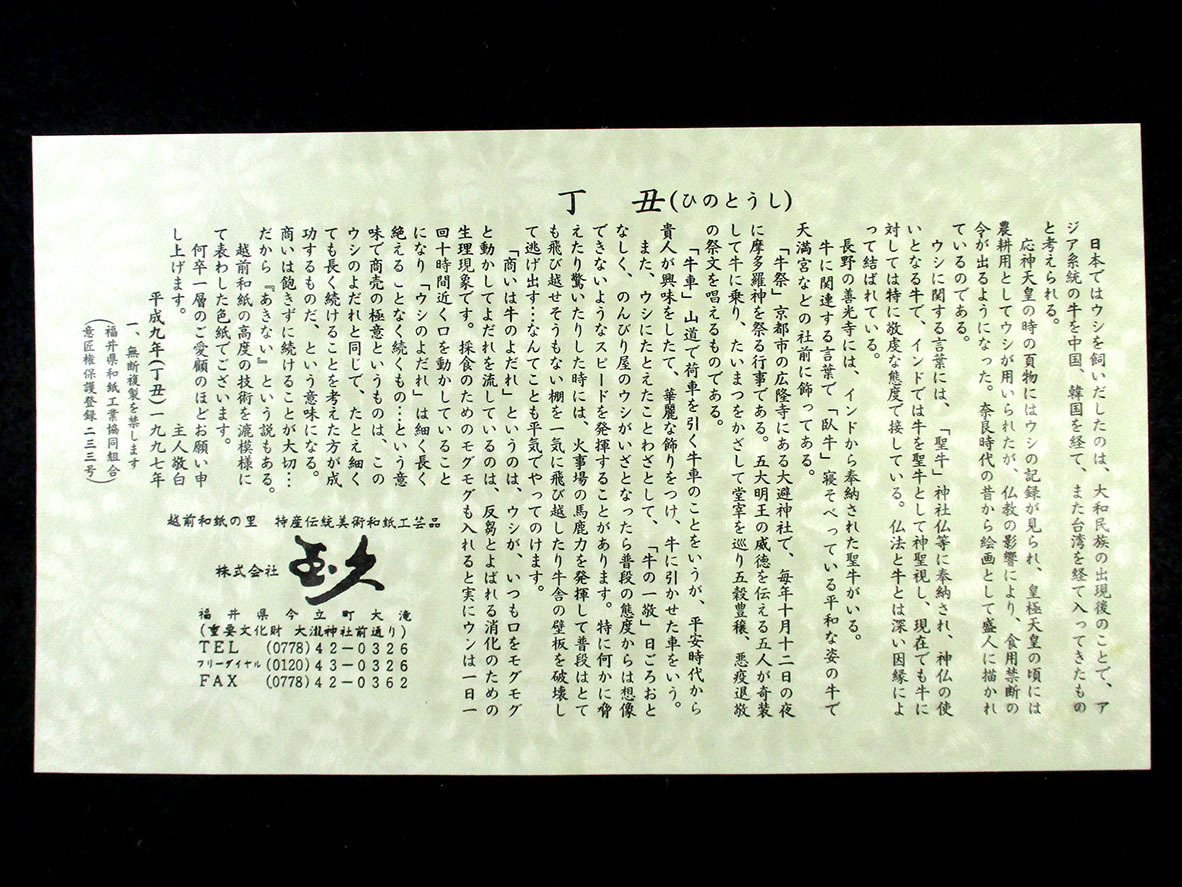 丁　丑(ひのとうし)
日本ではウシを飼いだしたのは、大和民族の出現後のことで、ア
ジア系統の牛を中国、韓国を経て、また台湾を経て入ってきたもの
と考えられる。
応神天皇の時の貢物にはウシの記録が見られ、皇極天皇の頃には
農耕用としてウシが用いられたが、仏教の影響により、食用禁断の
令が出るようになった。奈良時代の昔から絵画として盛人に描かれ
ているのである。
ウシに関する言葉には、「聖牛」神社仏等に奉納され、神仏の使
いとなる牛で、インドでは牛を聖牛として神聖視し、現在でも牛に
対しては特に敬虔な態度で接している。仏法と牛とは深い因縁によ
って結ばれている。
長野の善光寺には、インドから奉納された聖牛がいる。
牛に関連する言葉で「臥牛」寝そべっている平和な姿の牛で
天満宮などの社前に飾ってある。
「牛祭」京都市の広隆寺にある大避神社で、毎年十月十二日の夜
に摩多羅神を祭る行事である。五大明王の威徳を伝える五人が奇装
して牛に乗り、たいまつをかざして堂宰を巡り五穀豊穣、悪疫退散
の祭文を唱えるものである。
「牛車」山道で荷車を引く牛車のことをいうが、平安時代から
貴人が興味をしたて、華麗な飾りをつけ、牛に引かせた車をいう。
また、ウシにたとえたことわざとして、「牛の一散」日ごろおと
なしく、のんびり屋のウシがいざとなったら普段の態度からは想像
できないようなスピードを発揮することがあります。特に何かに脅
えたり驚いたりした時には、火事場の馬鹿力を発揮して普段はとて
も飛び越せそうもない棚を一気に飛び越したり牛舎の壁板を破壊し
て逃げ出す…なんてことも平気でやってのけます。
「商いは牛のよだれ」というのは、ウシが、いつも口をモグモグ
と動かしてよだれを流しているのは、反芻とよばれる消化のための
生理現象です。採食のためのモグモグも入れると実にウンは一日一
回十時間近く口を動かしていること
になり「ウシのよだれ」は細く長く
絶えることなく続くもの…という意
味で商売の極意というものは、この
ウシのよだれと同じで、たとえ細く
ても長く続けることを考えた方が成
功するものだ、という意味になる。
商いは飽きずに続けることが大切…
だから『あきない』という説もある。
越前和紙の高度の技術を漉模様に
て表わした色紙でございます。
何卒一層のご愛顧のほどお願い申
し上げます。　主人敬白
平成九年(丁丑)一九九七年
一、無断複製を禁じます
(福井県和紙工業協同組合
意匠権保護登録二三三号)
越前和紙の里　特産伝統美術和紙工芸品
株式会社
福井県今立町大滝
(重要文化財 大瀧神社前通り)
TEL (0778)42-0326
フリーダイヤル(0120)43-0326
FAX (0778)42-0362